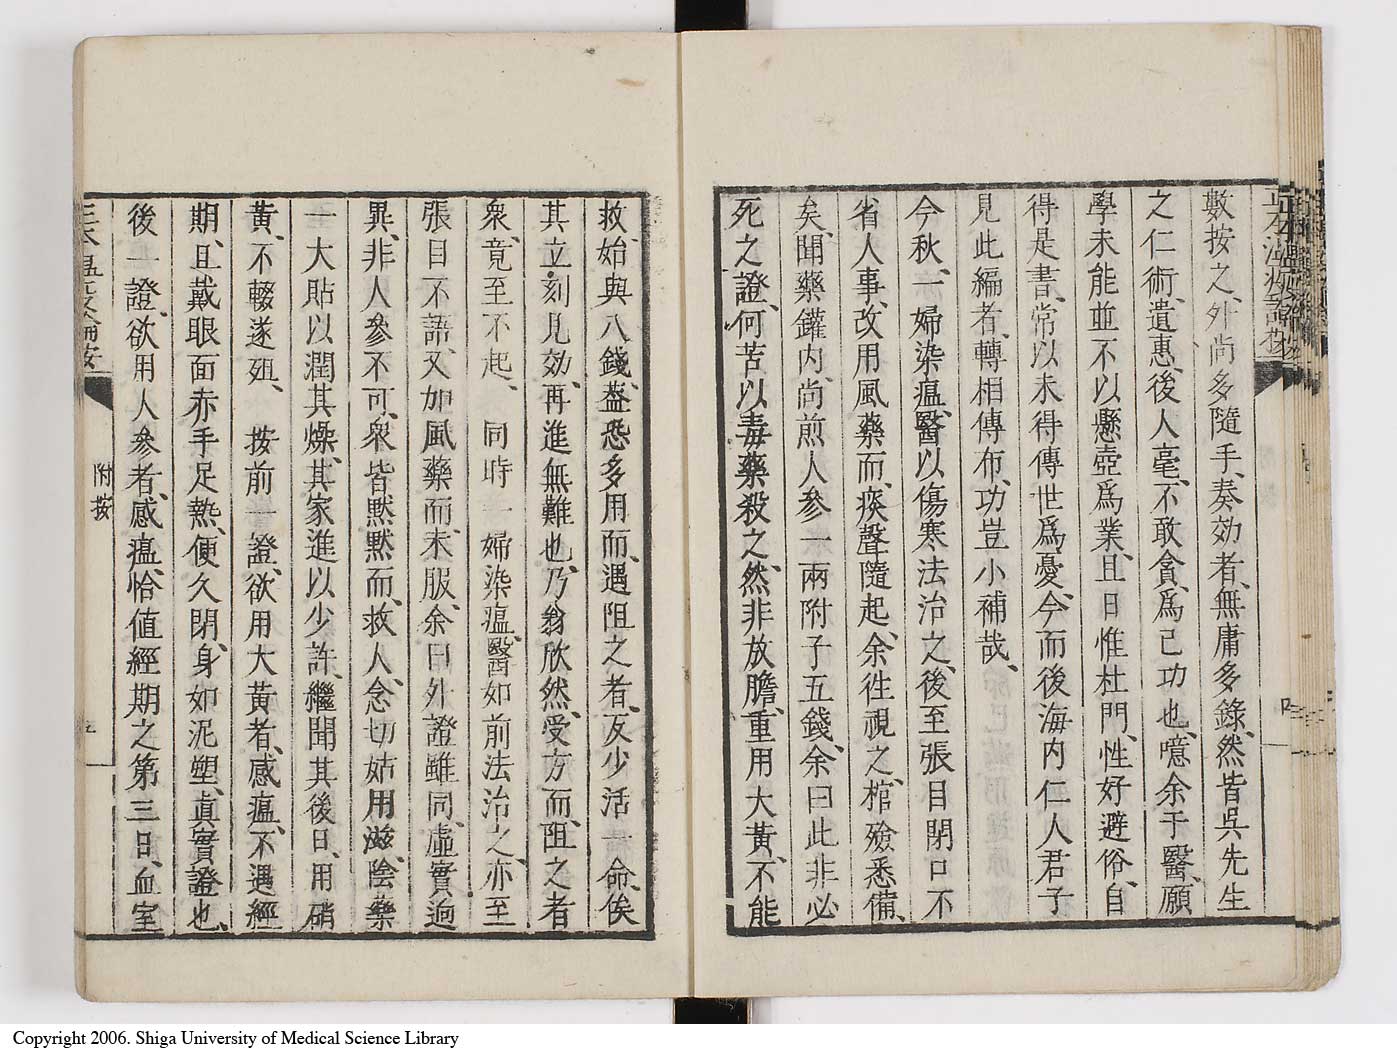 正本瘟疫論按
數按之外尚多隨手、奏効者、無庸多錄、然皆吳先生
之仁術、遺惠、後人毫不敢貪、爲己功也、噫、余于醫、願
學未能、並不以懸壺爲業、且日惟杜門、性好避俗、自
得是書、常以未得傳世爲憂、今而後海内仁人君子
見此編者、轉相傳布、功豈小補哉、
今秋、一婦染瘟、醫以傷寒法治之、後至張目閉口不
省人事、改用風藥而、痰聲隨起、余徃視之、棺殮悉備、
矣、聞藥罐内、尚煎人參一兩附子五錢、余曰此非必
死之證、何苦以毒藥殺之、然非放膽、重用大黃、不能
救、始與八錢、葢恐多用而、遇阻之者、反少活一命、俟
其立刻見効、再進無難也、乃翁欣然、受方而、阻之者
衆、竟至不起、 同時一婦染瘟、醫如前法治之、亦至
張目不語、又加風藥而、未服、余曰外證雖同、虛實逈
異、非人參不可、衆皆默默而、救人、念切姑用滋、陰藥
一大貼以潤其燥、其家進以少許、繼聞其後日、用硝
黃、不輟遂殂、 按前一證、欲用大黃者、感瘟、不遇經
期、且戴眼面赤手足熱、便久閉、身如泥塑、真實證也、
後一證、欲用人參者、感瘟、恰値經期之第三日、血室
附按
Copyright 2006. Shiga University of Medical Science Library